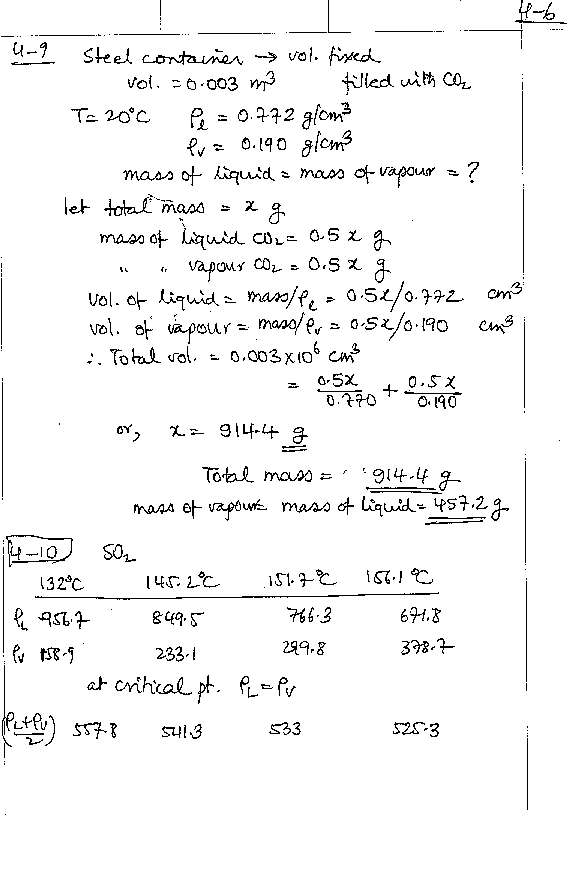 4-6
4-9 Steel container → vol. fixed
vol. = 0.003 m³ filled with CO₂
T = 20°C ρₗ = 0.772 g/cm³
ρᵥ = 0.190 g/cm³
mass of liquid = mass of vapour = ?
let total mass = x g
mass of liquid CO₂ = 0.5 x g
" " vapour CO₂ = 0.5 x g
Vol. of liquid = mass/ρₗ = 0.5x/0.772 cm³
vol. of vapour = mass/ρᵥ = 0.5x/0.190 cm³
∴ Total vol. = 0.003×10⁶ cm³
= 0.5x/0.770 + 0.5x/0.190
or, x = 914.4 g
Total mass = 914.4 g
mass of vapour = mass of liquid = 457.2 g
4-10 SO₂
132°C 145.2°C 151.7°C 156.1°C
ρL 956.7 849.5 766.3 671.8
ρV 158.9 233.1 299.8 378.7
at critical pt. ρL = ρV
(ρL+ρV/2) 557.8 541.3 533 525.3